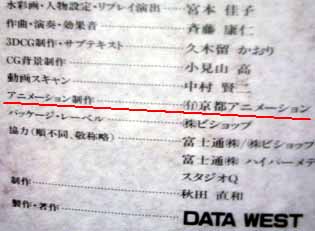 水彩画・人物設定・リプレイ演出 宮本 佳子
作曲・演奏・効果音 斉藤 康仁
3DCG制作・サブテキスト 久木留 かおり
CG背景制作 小見山 高
動画スキャン 中村 賢二
アニメーション制作 ㈲京都アニメーション
パッケージ・レーベル ㈱ビショップ
協力(順不同、敬称略) 富士通㈱/㈱ビショップ
富士通㈱ ハイパーメデ
スタジオQ
制作 秋田 直和
製作・著作 DATA WEST